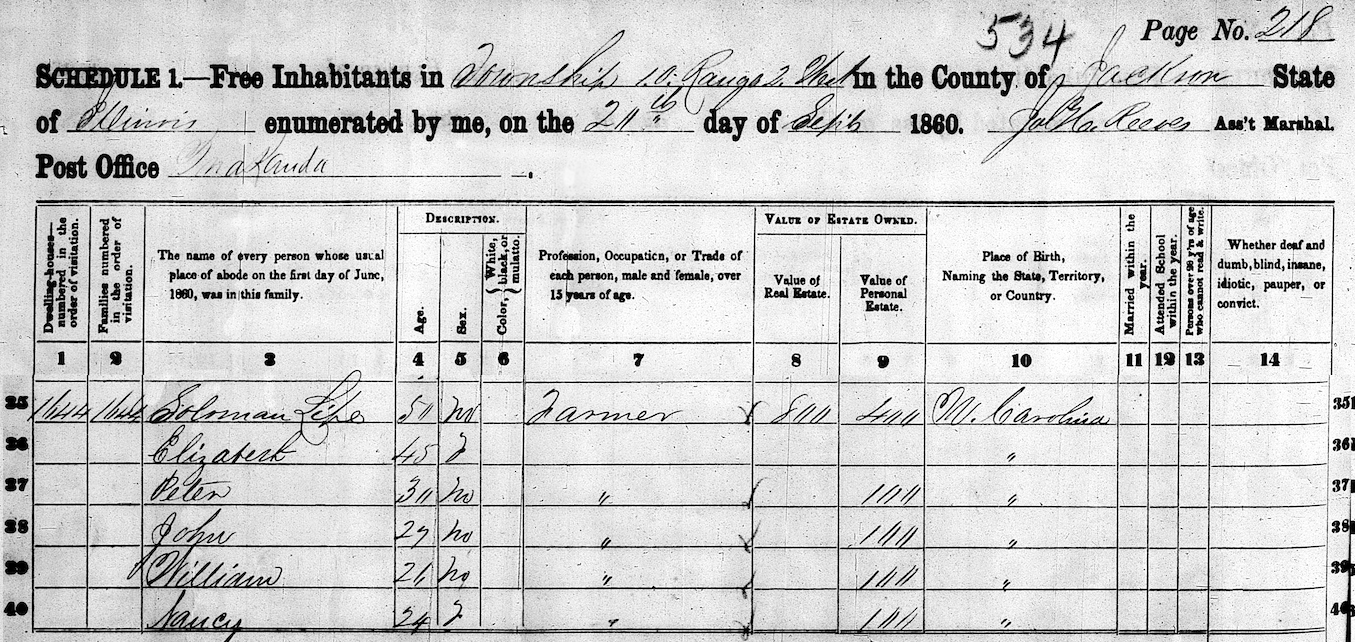 534 Page No. 218
SCHEDULE 1.—Free Inhabitants in Township 10. Range 2. West in the County of Jackson State
of Illinois enumerated by me, on the 20th day of Sept 1860. Reeves Ass't Marshal.
Post Office
Dwelling-houses—numbered in the order of visitation.
Families numbered in the order of visitation.
The name of every person whose usual place of abode on the first day of June, 1860, was in this family.
DESCRIPTION.
Age.
Sex.
Color, { White, black, or mulatto.
Profession, Occupation, or Trade of each person, male and female, over 15 years of age.
VALUE OF ESTATE OWNED.
Value of Real Estate.
Value of Personal Estate.
Place of Birth, Naming the State, Territory, or Country.
Married within the year.
Attended School within the year.
Persons over 20 y'rs of age who cannot read & write.
Whether deaf and dumb, blind, insane, idiotic, pauper, or convict.
1 2 3 4 5 6 7 8 9 10 11 12 13 14
35 1644 1644 Soloman Lipe 50 m Farmer 800 400 N. Carolina 35
36 Elizabeth 45 f " 36
37 Peter 30 m " 100 " 37
38 John 27 m " 100 " 38
39 William m " 100 " 39
40 Nancy 24 f " 100 40